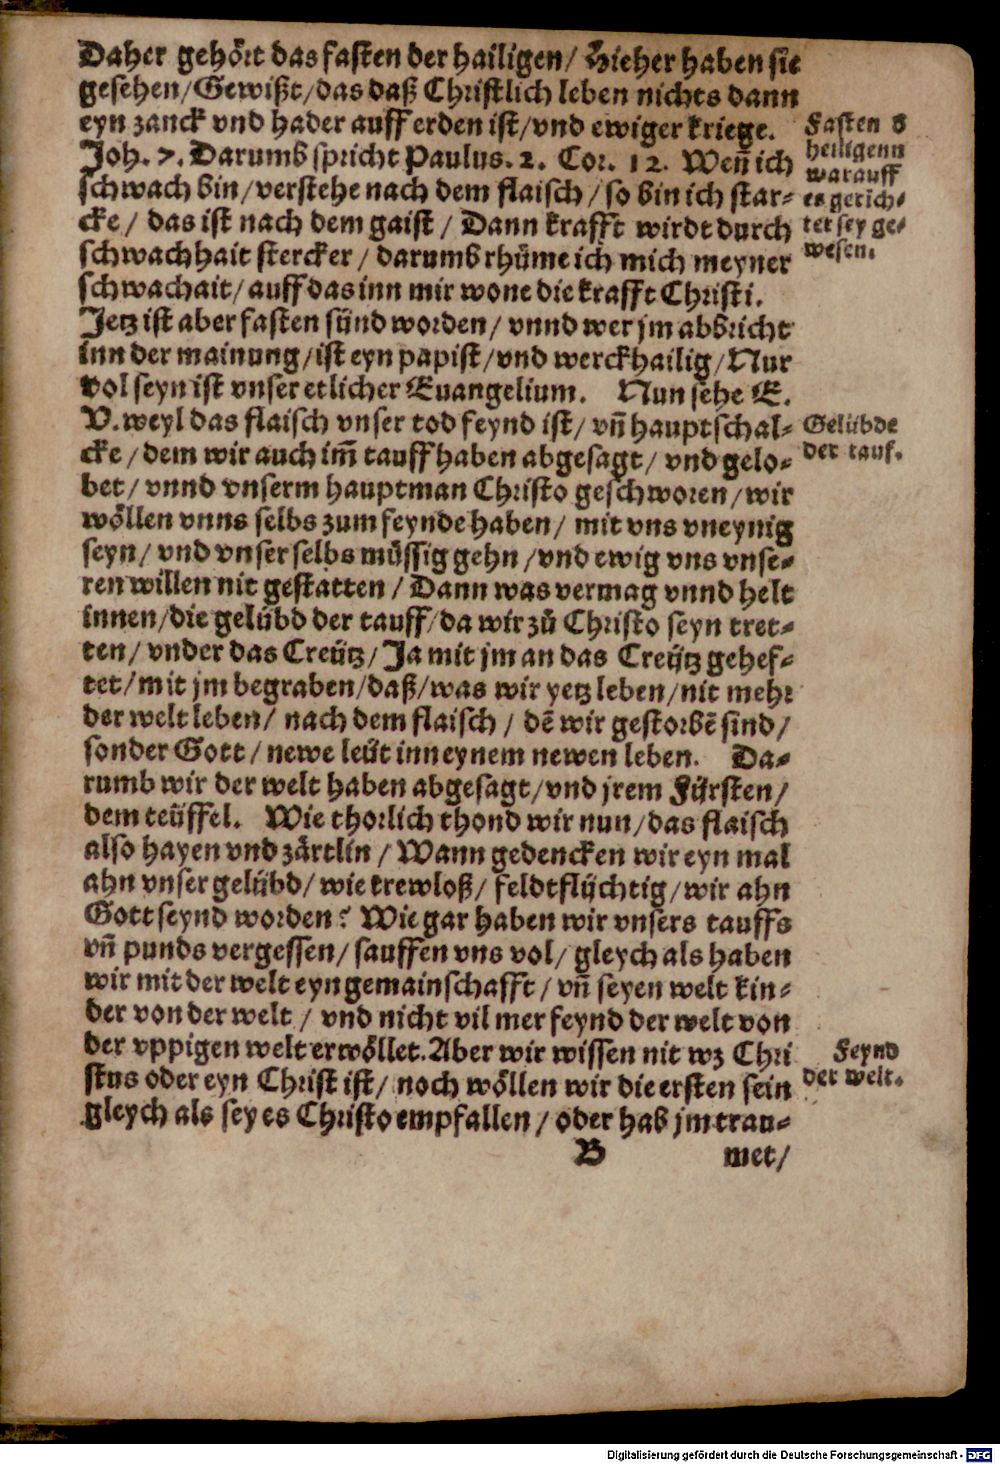 Daher gehört das fasten der hailigen/ Hieher haben sie
gesehen/Gewißt/das daß Christlich leben nichts dann
eyn zanck vnd hader auff erden ist/vnd ewiger kriege.
Joh. 7. Darumb spricht Paulus. 2. Cor. 12. Weñ ich
schwach bin/verstehe nach dem flaisch/so bin ich star-
cke/ das ist nach dem gaist/ Dann krafft wirdt durch
schwachhait stercker/ darumb rhüme ich mich meyner
schwachait/auff das inn mir wone die krafft Christi.
Jetz ist aber fasten sünd worden/ vnnd wer jm abbricht
inn der mainung/ist eyn papist/vnd werckhailig/Nur
vol seyn ist vnser etlicher Euangelium. Nun sehe E.
V. weyl das flaisch vnser tod feynd ist/ vñ hauptschal-
cke/dem wir auch im̃ tauff haben abgesagt/ vnd gelo-
bet/ vnnd vnserm hauptman Christo geschworen/wir
wöllen vnns selbs zum feynde haben/ mit vns vneynig
seyn/ vnd vnser selbs müssig gehn/vnd ewig vns vnse-
ren willen nit gestatten/ Dann was vermag vnnd helt
innen/die gelübd der tauff/da wir zů Christo seyn tret-
ten/ vnder das Creütz/Ja mit jm an das Creütz gehef-
tet/mit jm begraben/daß/was wir yetz leben/nit mehr
der welt leben/ nach dem flaisch/ dẽ wir gestorbẽ sind/
sonder Gott/newe leüt inn eynem newen leben. Da-
rumb wir der welt haben abgesagt/vnd jrem Fürsten/
dem teüffel. Wie thorlich thond wir nun/das flaisch
also hayen vnd zärtlin/ Wann gedencken wir eyn mal
ahn vnser gelübd/wie trewloß/ feldtflüchtig/wir ahn
Gott seynd worden? Wie gar haben wir vnsers tauffs
vñ punds vergessen/sauffen vns vol/gleych als haben
wir mit der welt eyn gemainschafft/vñ seyen welt kin-
der von der welt/ vnd nicht vil mer feynd der welt von
der vppigen welt erwöllet. Aber wir wissen nit wz Chri
stus oder eyn Christ ist/ noch wöllen wir die ersten sein
gleych als sey es Christo empfallen/oder hab jm trau-
B met/
Fasten d̕
heiligenn
warauff
es gerich-
tet sey ge-
wesen.
Gelübde
der tauf.
Feynd
der welt.
Digitalisierung gefördert durch die Deutsche Forschungsgemeinschaft - DFG